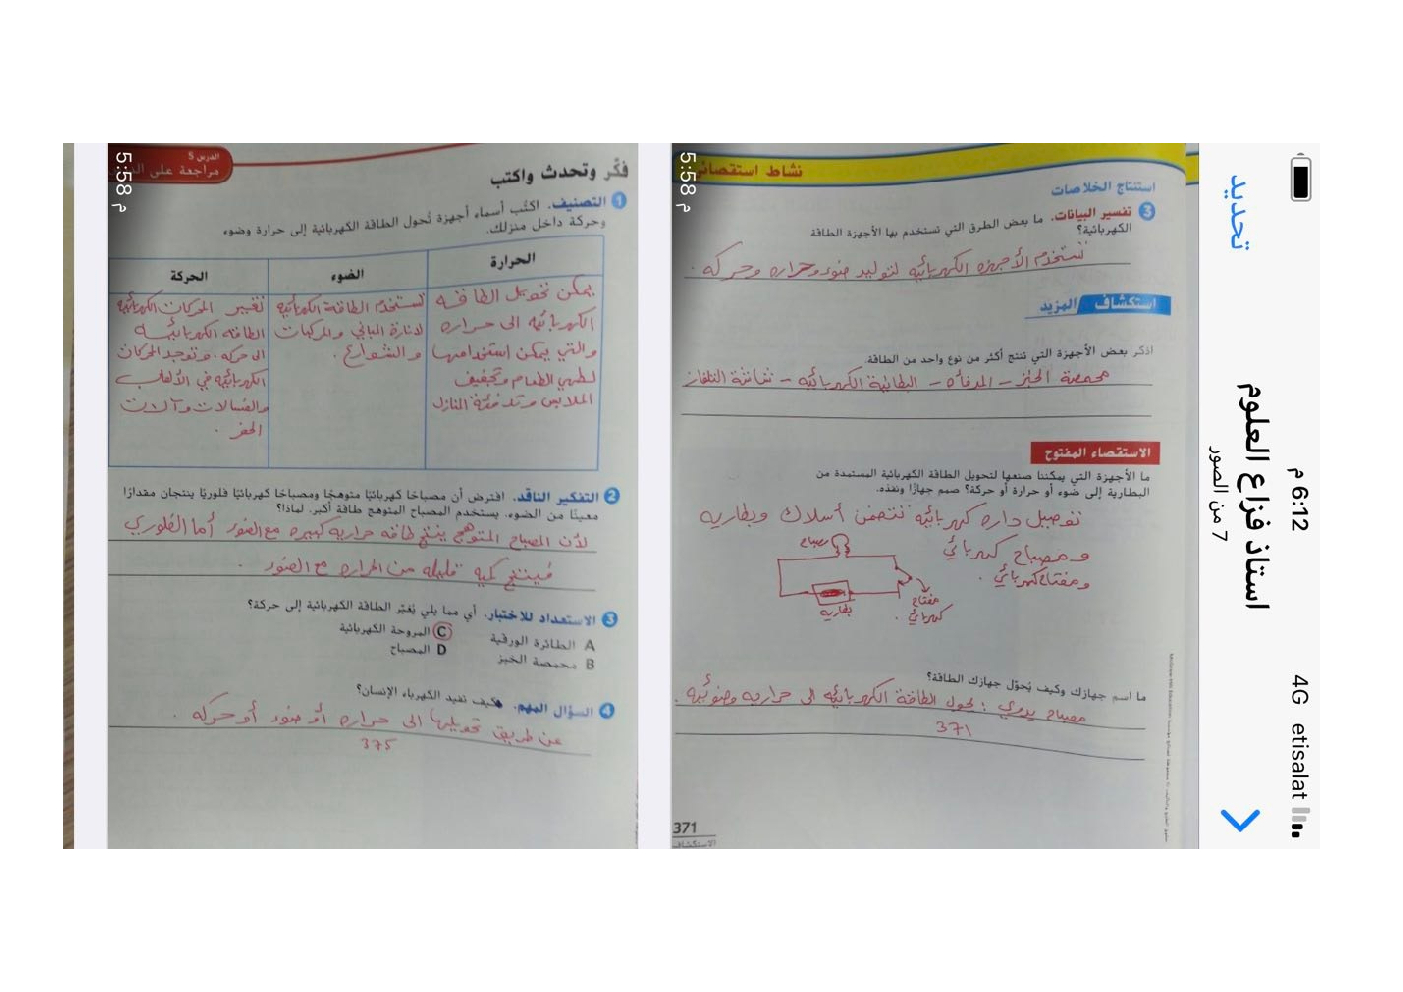 6:12 م
4G etisalat
تحديد
استاذ فزاع العلوم
7 من الصور
5:58 م
نشاط استقصائي
استنتاج الخلاصات
3 تفسير البيانات. ما بعض الطرق التي تستخدم بها الأجهزة الطاقة
الكهربائية؟
تستخدم الأجهزه الكهربائيه لتوليد ضوء وحراره وحركه .
استكشاف المزيد
اذكر بعض الأجهزة التي تنتج أكثر من نوع واحد من الطاقة.
محمصة الخبز - المدفأه - البطانية الكهربائيه - شاشة التلفاز
الاستقصاء المفتوح
ما الأجهزة التي يمكننا صنعها لتحويل الطاقة الكهربائية المستمدة من
البطارية إلى ضوء أو حرارة أو حركة؟ صمم جهازًا ونفذه.
توصيل داره كهربائيه تتضمن أسلاك وبطاريه
ومصباح كهربائي
ومفتاح كهربائي .
مصباح
مفتاح
كهربائي .
بطاريه
ما اسم جهازك وكيف يُحوّل جهازك الطاقة؟
مصباح يدوي : يحول الطاقة الكهربائيه الى حراريه وضوئيه .
371
371
الاستكشاف
5:58 م
الدرس 5
مراجعة على
فكّر وتحدث واكتب
1 التصنيف. اكتُب أسماء أجهزة تُحول الطاقة الكهربائية إلى حرارة وضوء
وحركة داخل منزلك.
الحرارة الضوء الحركة
يمكن تحويل الطاقه
الكهربائيه الى حراره
والتي يمكن استخدامها
لطهي الطعام وتجفيف
الملابس وتدفئة المنازل
تستخدم الطاقة الكهربائيه
لانارة المباني والمركبات
والشوارع .
تغيير المحركات الكهربائيه
الطاقه الكهربائيه
الى حركه . وتوجد المحركات
الكهربائيه في الألعاب
والغسالات وآلات
الحفر .
2 التفكير الناقد. افترض أن مصباحًا كهربائيًا متوهجًا ومصباحًا كهربائيًا فلوريًا ينتجان مقدارًا
معينًا من الضوء. يستخدم المصباح المتوهج طاقة أكبر. لماذا؟
لأن المصباح المتوهج ينتج طاقه حراريه كبيره مع الضوء أما الفلوري
فينتج كميه قليله من الحراره مع الضوء .
3 الاستعداد للاختبار. أي مما يلي يُغيّر الطاقة الكهربائية إلى حركة؟
A الطائرة الورقية C المروحة الكهربائية
B محمصة الخبز D المصباح
4 السؤال المهم. كيف تفيد الكهرباء الإنسان؟
عن طريق تحويلها الى حراره أو ضوء أو حركه .
375